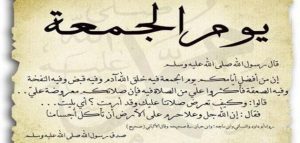 يوم الجمعة
قال رسول الله صلى الله عليه وسلم
إن من أفضل أيامكم يوم الجمعة فيه خلق الله آدم وفيه قبض وفيه النفخة
وفيه الصعقة فأكثروا علي من الصلاة فيه فإن صلاتكم معروضة علي..
قالوا: وكيف تعرض صلاتنا عليك وقد أرمت؟ أي بليت..
فقال: إن الله جل وعلا حرم على الأرض أن تأكل أجسامنا
صدق رسول الله صلى الله عليه وسلم